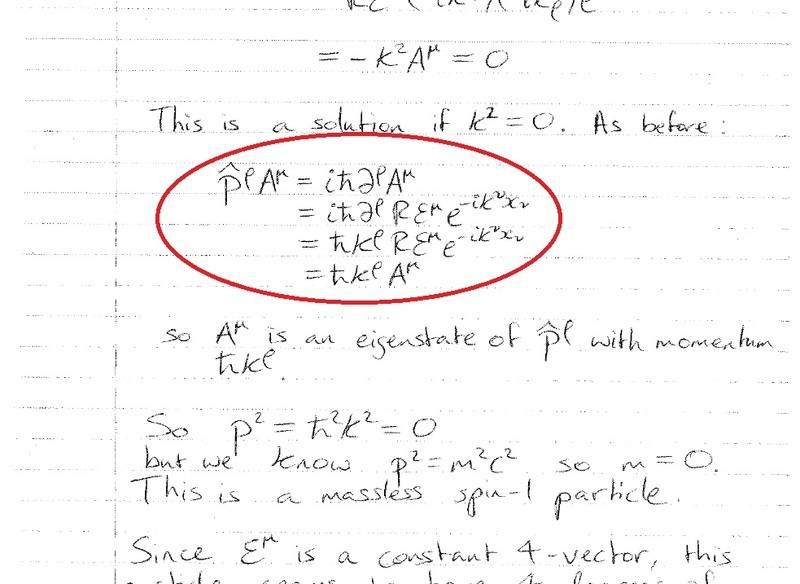 = - k²A^μ = 0
This is a solution if k² = 0. As before :
p̂^ρ A^μ = iħ∂^ρ A^μ
= iħ∂^ρ R ε^μ e^{-ik^ν x_ν}
= ħk^ρ R ε^μ e^{-ik^ν x_ν}
= ħk^ρ A^μ
so A^μ is an eigenstate of p̂^ρ with momentum
ħk^ρ.
So p² = ħ²k² = 0
but we know p² = m²c² so m = 0.
This is a massless spin-1 particle.
Since ε^μ is a constant 4-vector, this